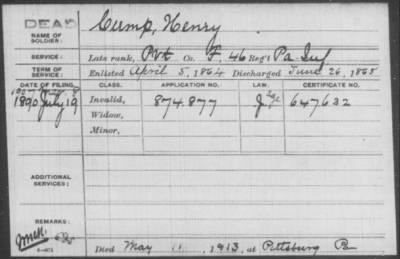 DEAD
NAME OF SOLDIER:
Cump, Henry
SERVICE:
Late rank, Pvt Co. F, 46 Reg't Pa Inf
TERM OF SERVICE:
Enlisted April 5, 1864 Discharged June 26, 1865
DATE OF FILING. CLASS. APPLICATION NO. LAW. CERTIFICATE NO.
1890 July 19 Invalid, 874.877 647632
Widow,
Minor,
ADDITIONAL SERVICES:
REMARKS:
Died May 1913, at Pittsburg Pa